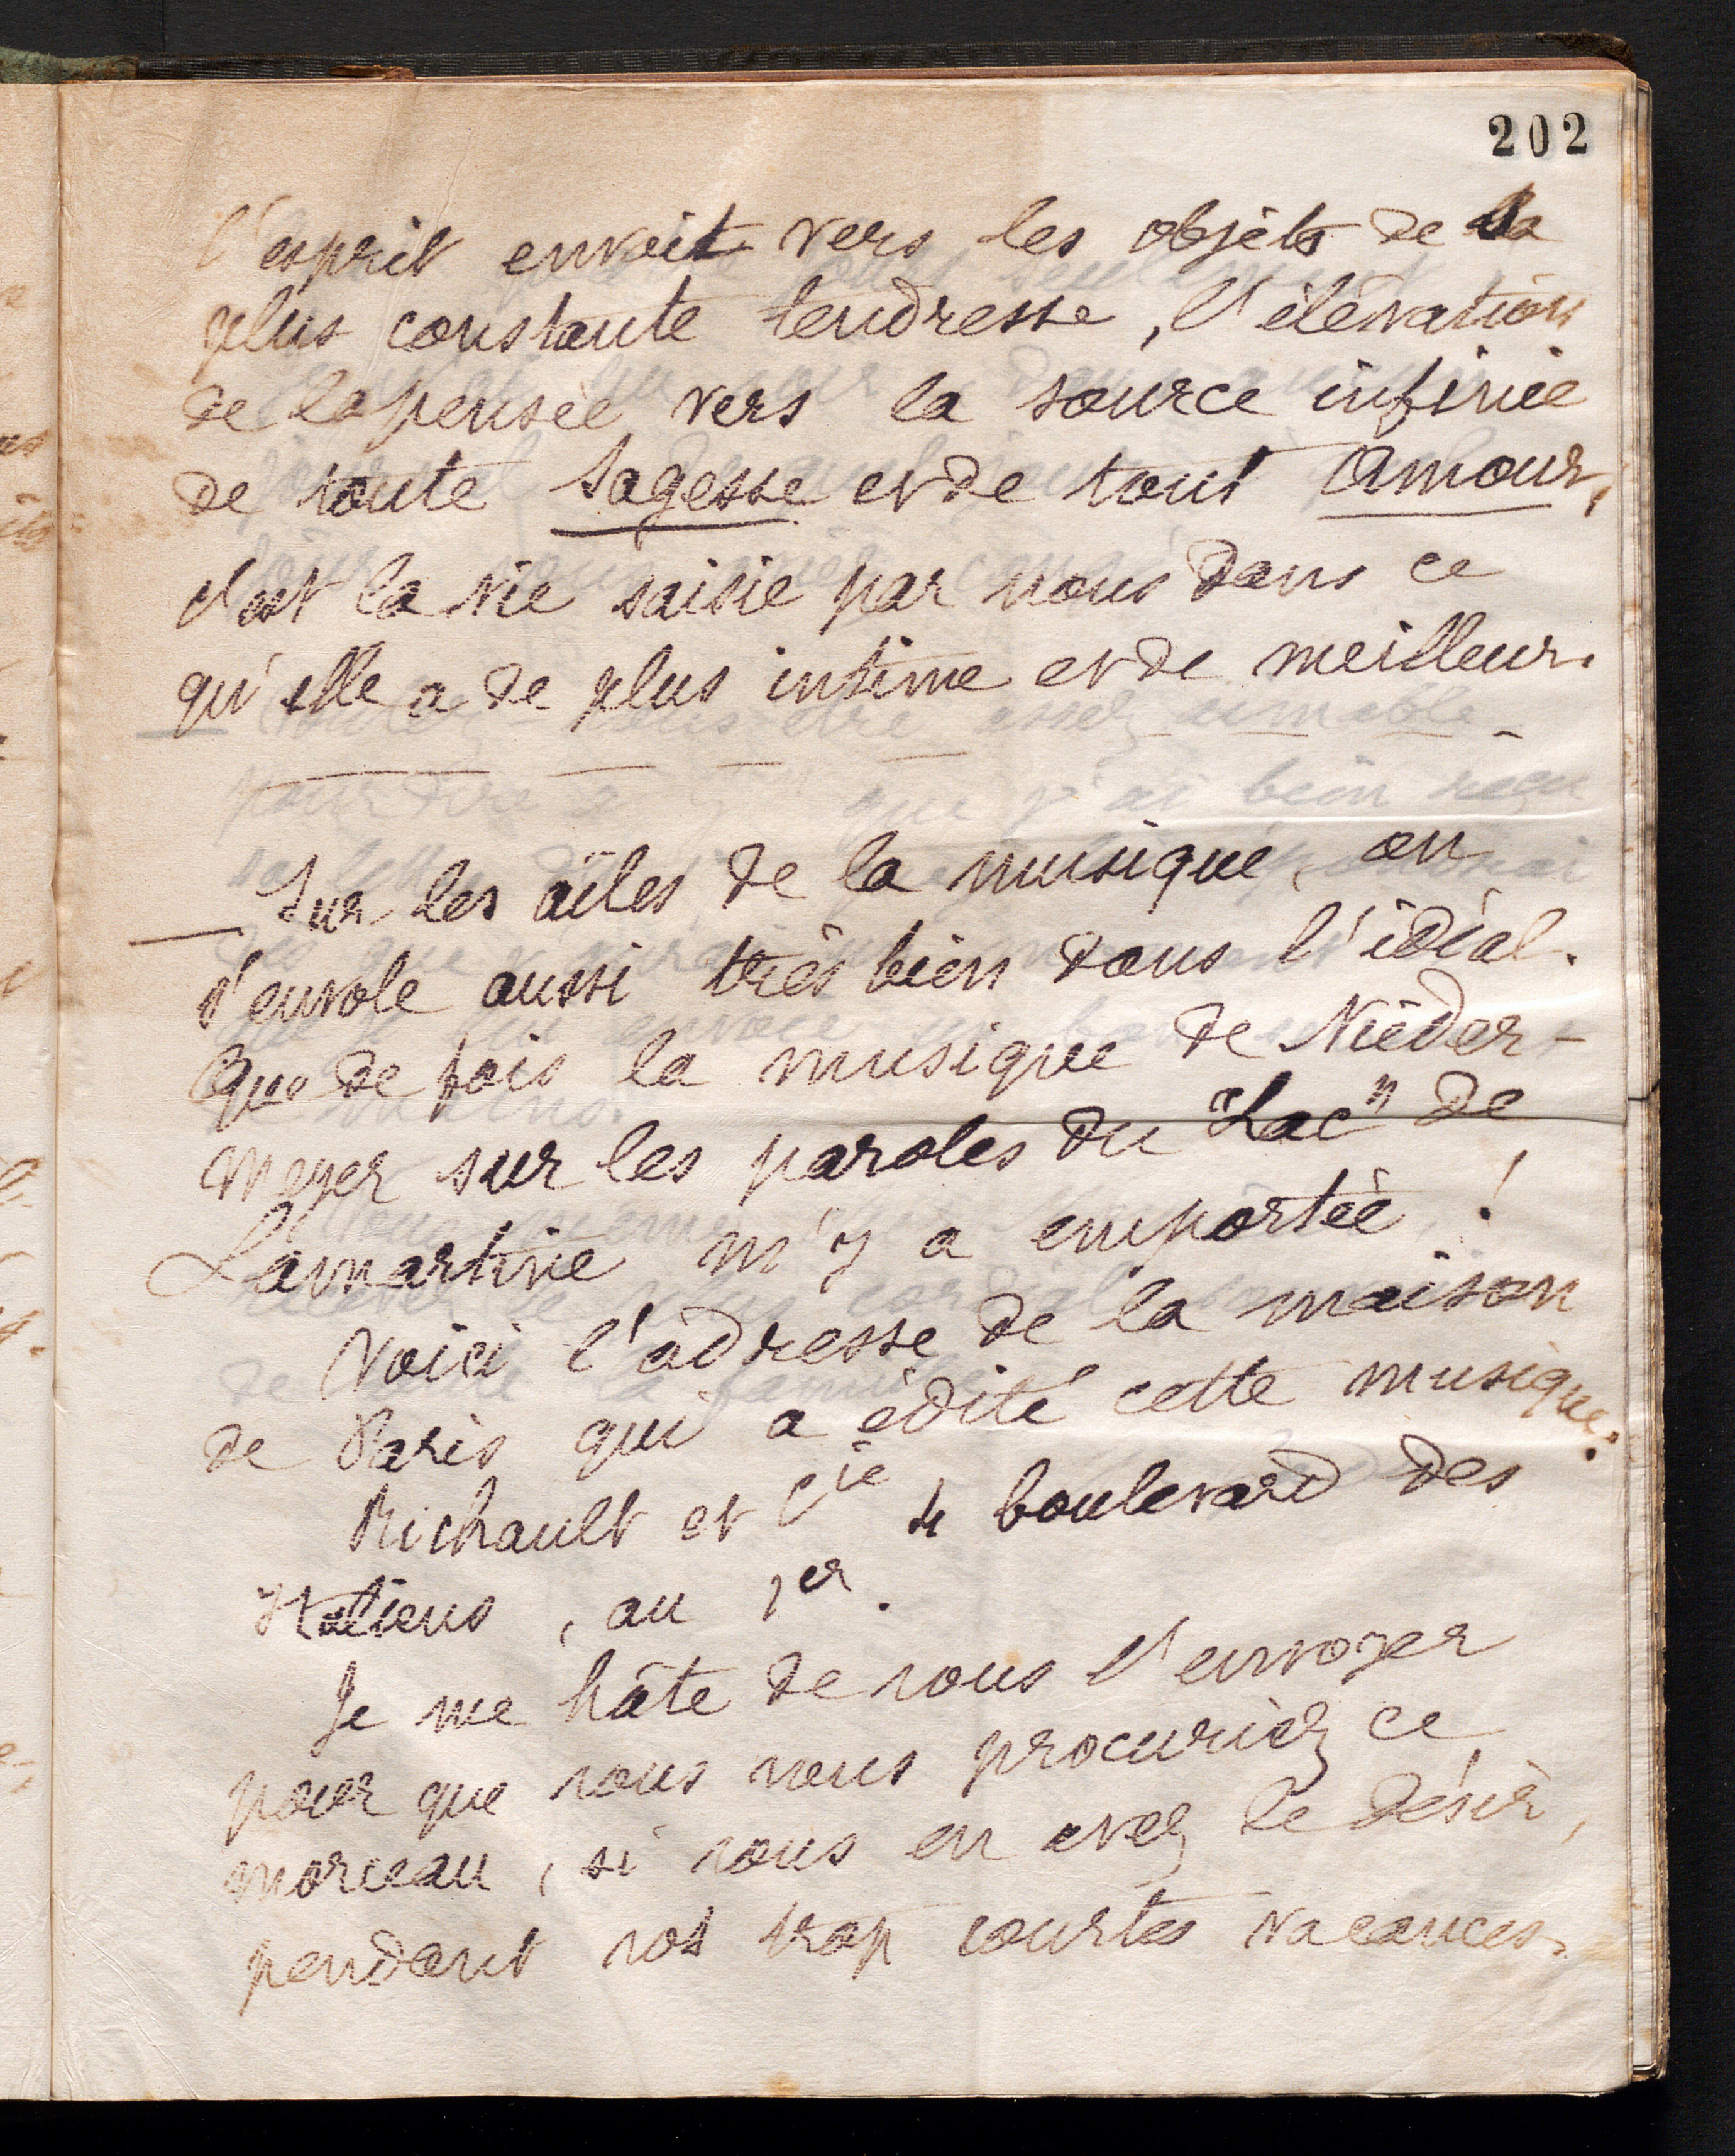 202
l'esprit envoit vers les objets de la
plus constante tendresse, l'élévation
de la pensée vers la source infinie
de toute Sagesse et de tout Amour,
c'est la vie saisie par nous dans ce
qu'elle a de plus intime et de meilleur.
— Sur les ailes de la musique, on
s'envole aussi très bien dans l'idéal.
Que de fois la musique de Nieder-
meyer sur les paroles du "Lac" de
Lamartine m'y a emportée !
Voici l'adresse de la maison
de Paris qui a édité cette musique :
Richault et Cie 4 boulevard des
Italiens, au 1er.
Je me hâte de vous l'envoyer
pour que vous vous procuriez ce
morceau, si vous en avez le désir,
pendant vos trop courtes vacances.